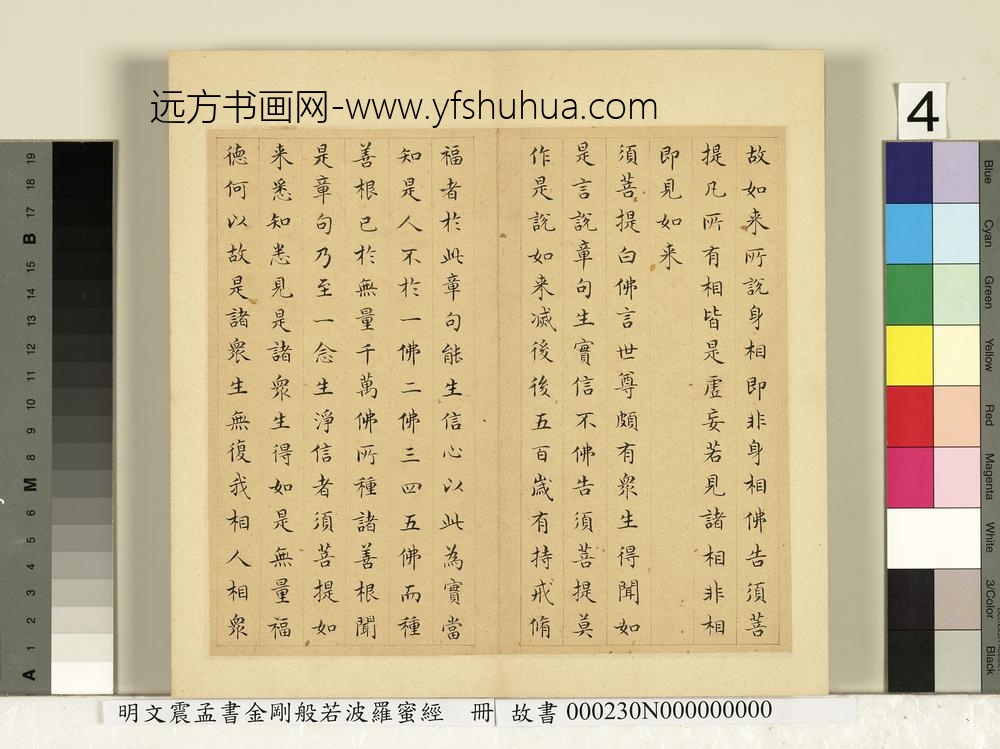 远方书画网-www.yfshuhua.com
故如来所說身相即非身相佛告須菩
提凡所有相皆是虛妄若見諸相非相
即見如来
須菩提白佛言世尊頗有衆生得聞如
是言說章句生實信不佛告須菩提莫
作是說如来滅後後五百歲有持戒脩
福者於此章句能生信心以此為實當
知是人不於一佛二佛三四五佛而種
善根已於無量千萬佛所種諸善根聞
是章句乃至一念生淨信者須菩提如
来悉知悉見是諸衆生得如是無量福
德何以故是諸衆生無復我相人相衆
4
19
18
17
B
15
14
13
12
11
10
9
8
M
6
5
4
3
2
1
A
Blue
Cyan
Green
Yellow
Red
Magenta
White
3/Color
Black
明文震孟書金剛般若波羅蜜經 冊 故書 000230N000000000